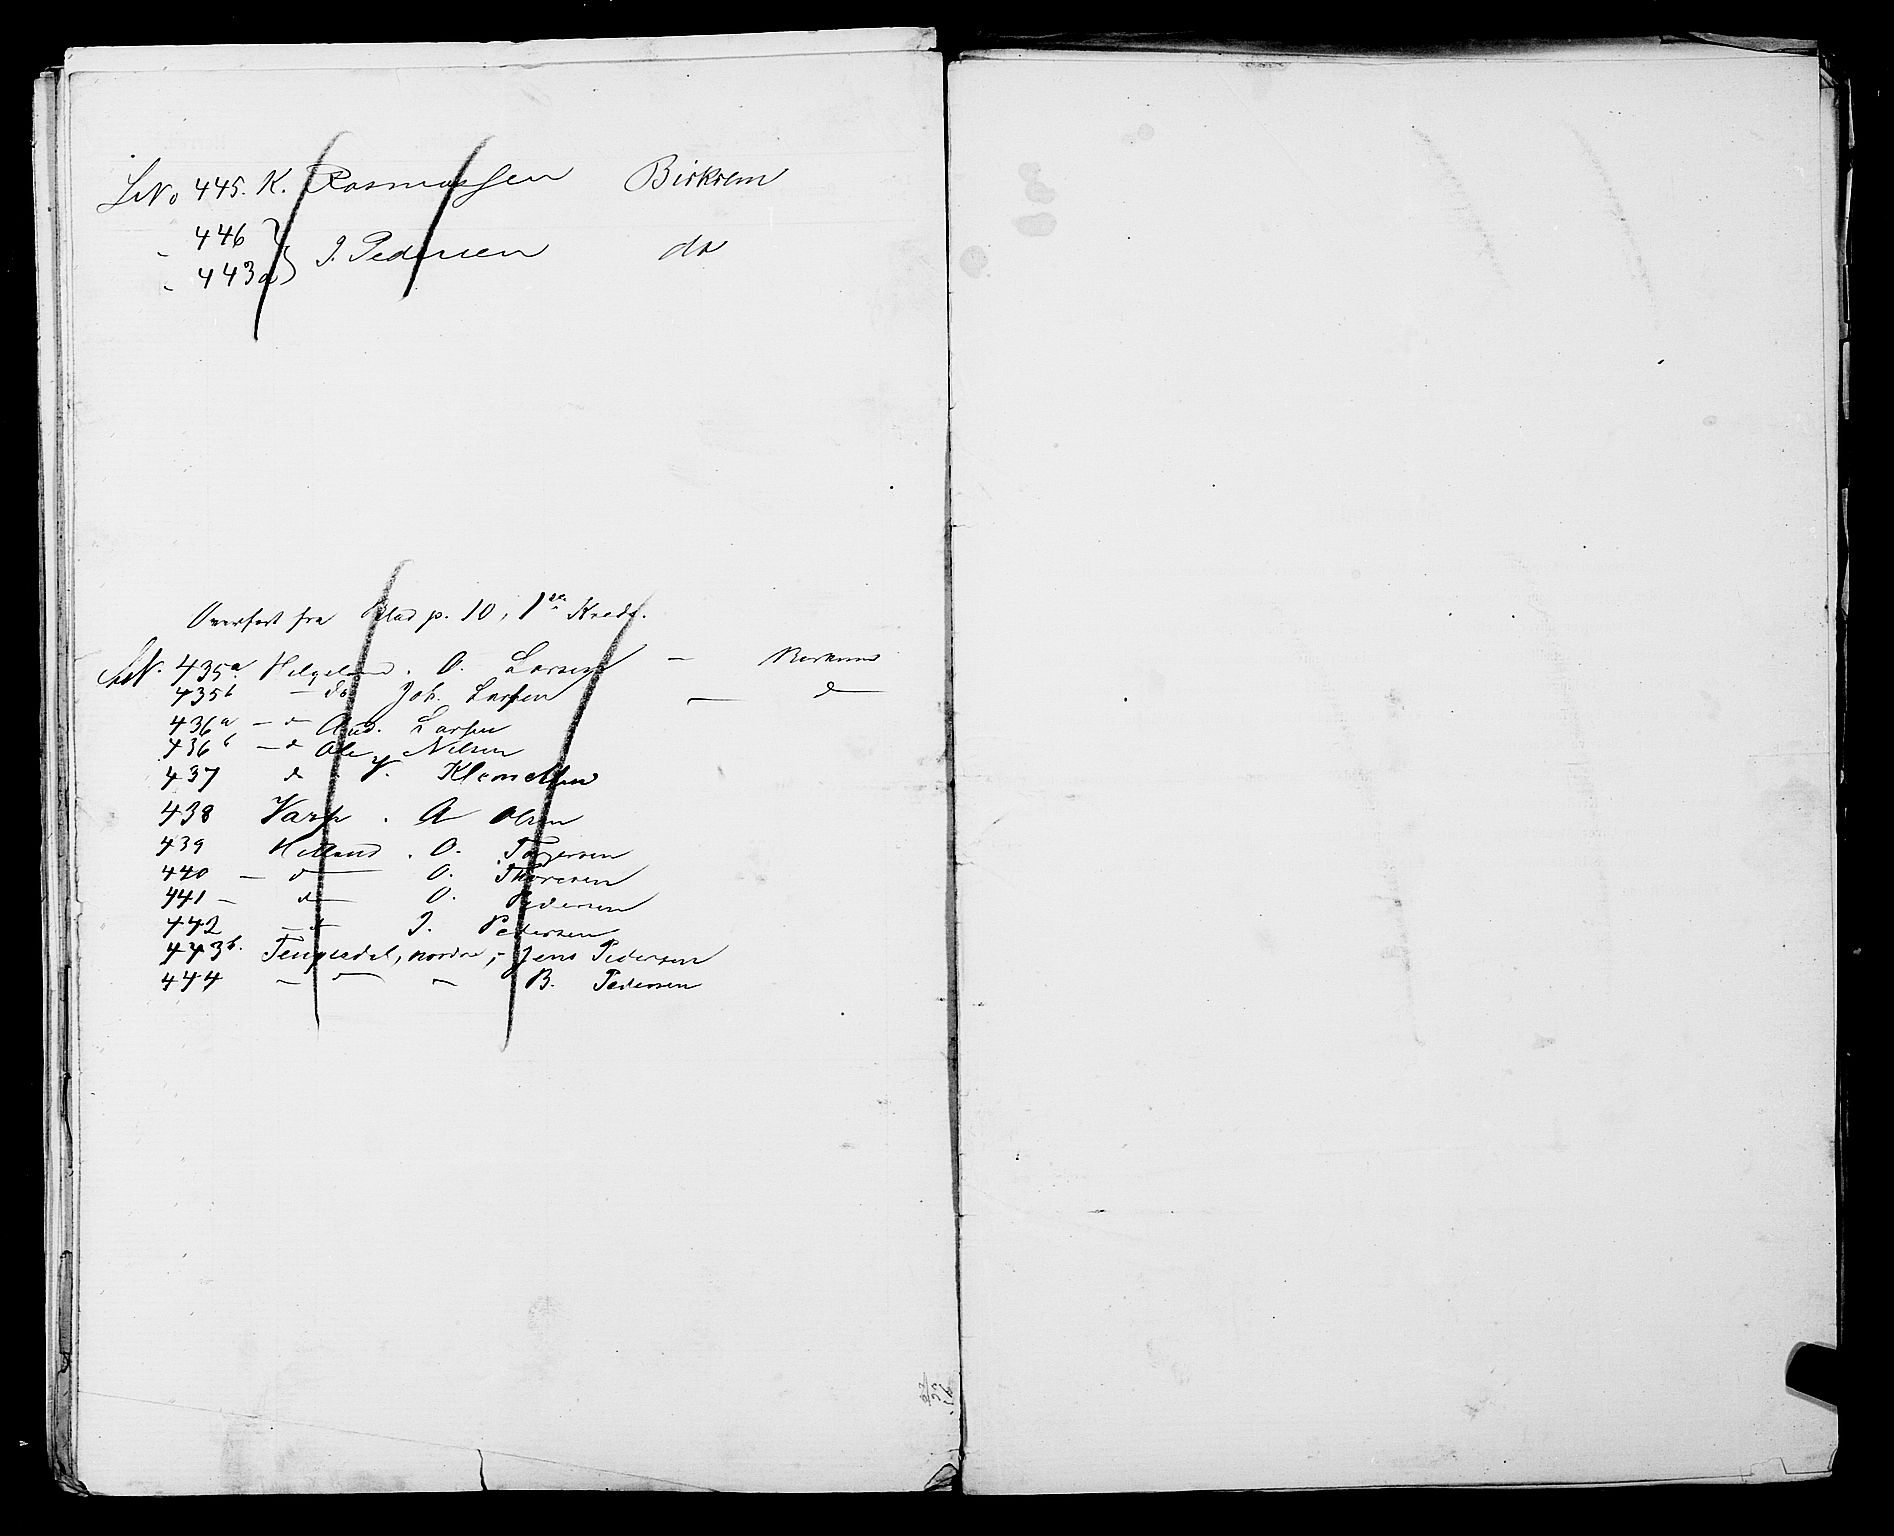 LNo 445. K. Rasmussen Birkrem
" 446
" 443a } J. Pedersen do
Overført fra Blad p. 10, 1ste Kreds.
LN. 435a Helgeland. O. Larsen — Birkrem
435b — do Joh. Larsen — d
436a — d — And. Larsen
436b — d Ole Nilsen
437 d . V. Klemetsen
438 Varp . A Olsen
439 Helland . O. Torgersen
440 — d — O. Thoresen
441 — d — O. Pedersen
442 — d — J. Pedersen
443b. Tengesdal, nordre, - Jens Pedersen
444 — " — B. Pedersen